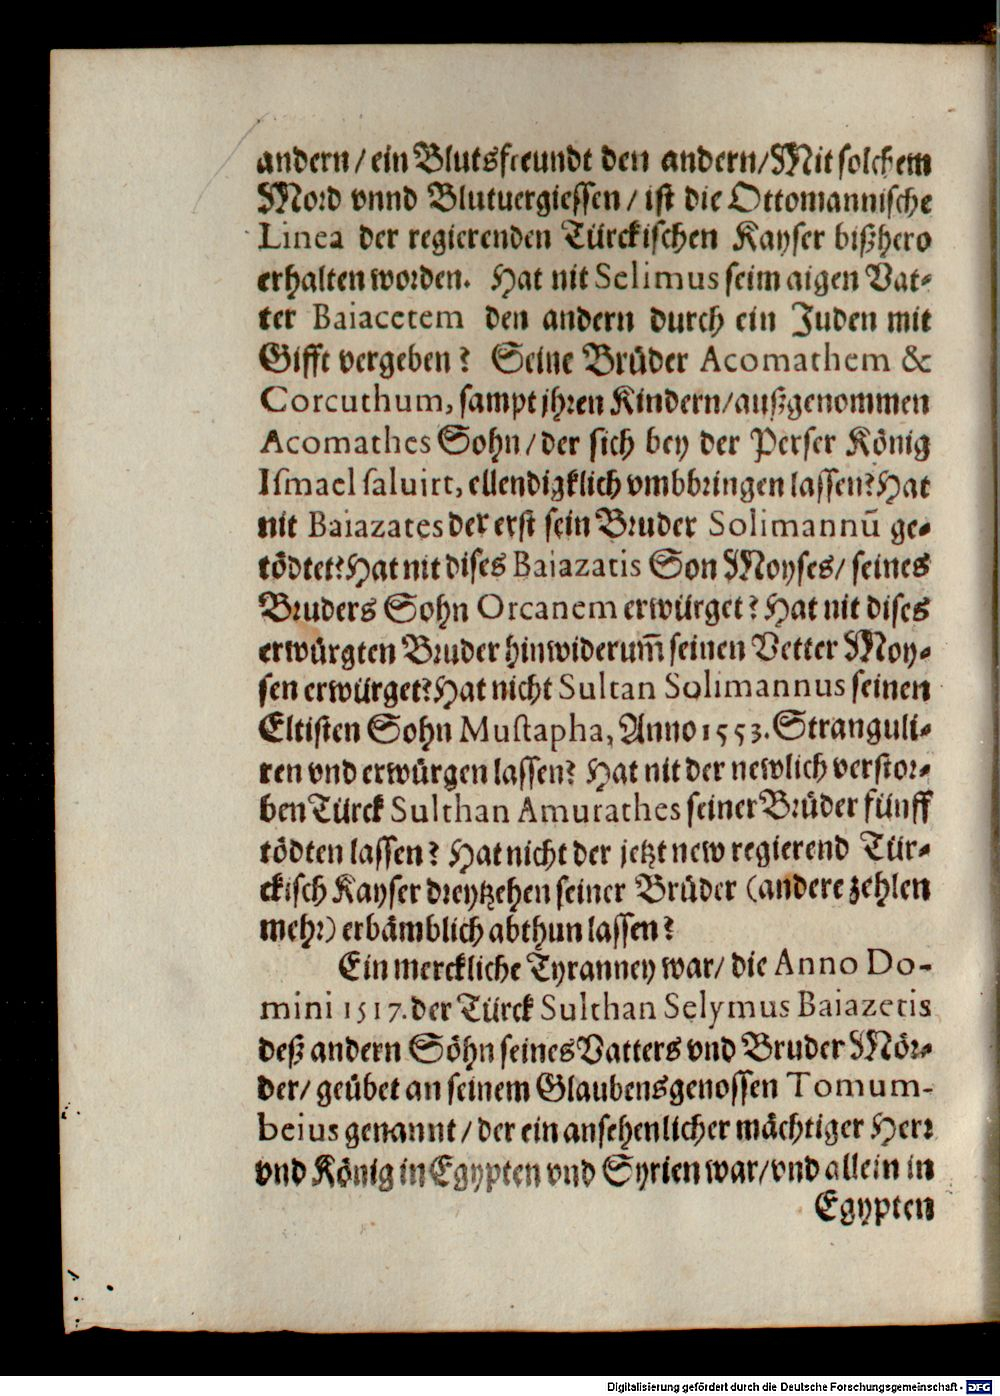 andern / ein Blutsfreundt den andern / Mit solchem
Mord vnnd Blutuergiessen / ist die Ottomannische
Linea der regierenden Türckischen Kayser bißhero
erhalten worden. Hat nit Selimus seim aigen Vat-
ter Baiacetem den andern durch ein Juden mit
Gifft vergeben? Seine Brüder Acomathem &
Corcuthum, sampt jhren Kindern / außgenommen
Acomathes Sohn / der sich bey der Perser König
Ismael saluirt, ellendigklich vmbbringen lassen? Hat
nit Baiazates der erst sein Bruder Solimannū ge-
tödtet? Hat nit dises Baiazatis Son Moyses / seines
Bruders Sohn Orcanem erwürget? Hat nit dises
erwürgten Bruder hinwiderum̃ seinen Vetter Moy-
sen erwürget? Hat nicht Sultan Solimannus seinen
Eltisten Sohn Mustapha, Anno 1553. Stranguli-
ren vnd erwürgen lassen? Hat nit der newlich verstor-
ben Türck Sulthan Amurathes seiner Brüder fünff
tödten lassen? Hat nicht der jetzt new regierend Tür-
ckisch Kayser dreytzehen seiner Brüder (andere zehlen
mehr) erbämblich abthun lassen?
Ein merckliche Tyranney war / die Anno Do-
mini 1517. der Türck Sulthan Selymus Baiazetis
deß andern Söhn seines Vatters vnd Bruder Mör-
der / geübet an seinem Glaubensgenossen Tomum-
beius genannt / der ein ansehenlicher mächtiger Herr
vnd König in Egypten vnd Syrien war / vnd allein in
Egypten
Digitalisierung gefördert durch die Deutsche Forschungsgemeinschaft - DFG